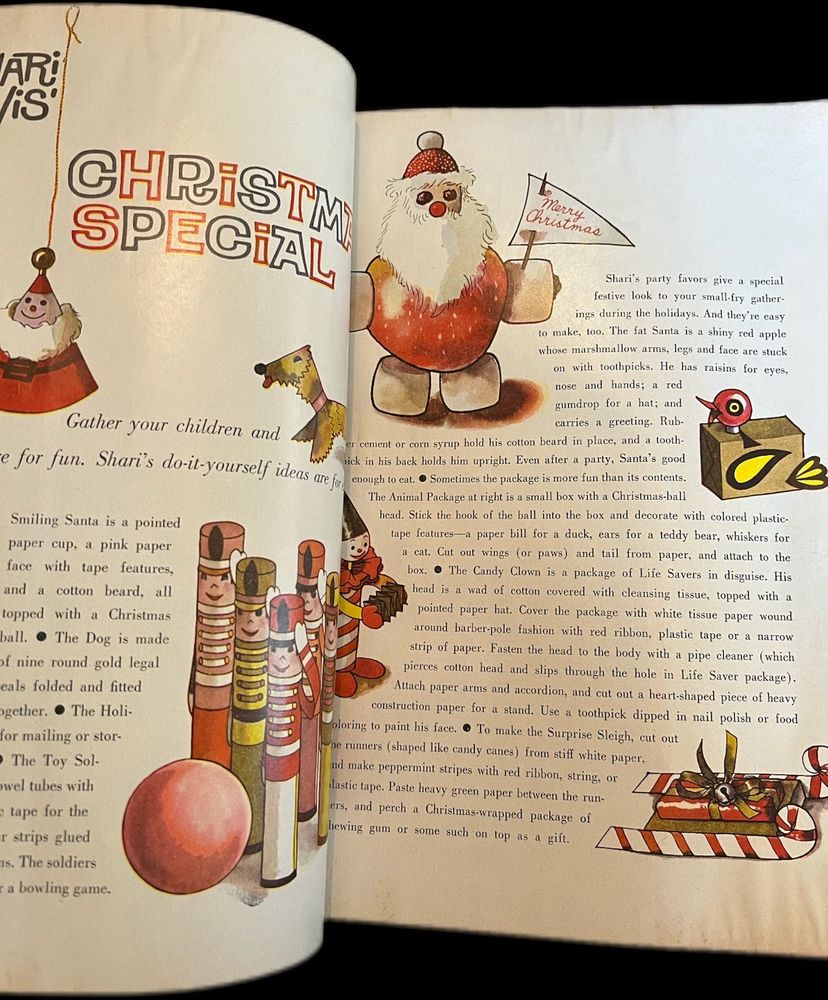 ARi
WiS'
CHRiSTMA
SPECiAL
Gather your children and
e for fun. Shari's do-it-yourself ideas are for
Smiling Santa is a pointed
paper cup, a pink paper
face with tape features,
and a cotton beard, all
topped with a Christmas
ball. ● The Dog is made
of nine round gold legal
eals folded and fitted
ogether. ● The Holi-
for mailing or stor-
● The Toy Sol-
owel tubes with
c tape for the
r strips glued
ns. The soldiers
r a bowling game.
Merry
Christmas
Shari's party favors give a special
festive look to your small-fry gather-
ings during the holidays. And they're easy
to make, too. The fat Santa is a shiny red apple
whose marshmallow arms, legs and face are stuck
on with toothpicks. He has raisins for eyes,
nose and hands; a red
gumdrop for a hat; and
carries a greeting. Rub-
er cement or corn syrup hold his cotton beard in place, and a tooth-
pick in his back holds him upright. Even after a party, Santa's good
enough to eat. ● Sometimes the package is more fun than its contents.
The Animal Package at right is a small box with a Christmas-ball
head. Stick the hook of the ball into the box and decorate with colored plastic-
tape features—a paper bill for a duck, ears for a teddy bear, whiskers for
a cat. Cut out wings (or paws) and tail from paper, and attach to the
box. ● The Candy Clown is a package of Life Savers in disguise. His
head is a wad of cotton covered with cleansing tissue, topped with a
pointed paper hat. Cover the package with white tissue paper wound
around barber-pole fashion with red ribbon, plastic tape or a narrow
strip of paper. Fasten the head to the body with a pipe cleaner (which
pierces cotton head and slips through the hole in Life Saver package).
Attach paper arms and accordion, and cut out a heart-shaped piece of heavy
construction paper for a stand. Use a toothpick dipped in nail polish or food
oloring to paint his face. ● To make the Surprise Sleigh, cut out
he runners (shaped like candy canes) from stiff white paper,
nd make peppermint stripes with red ribbon, string, or
lastic tape. Paste heavy green paper between the run-
ers, and perch a Christmas-wrapped package of
hewing gum or some such on top as a gift.